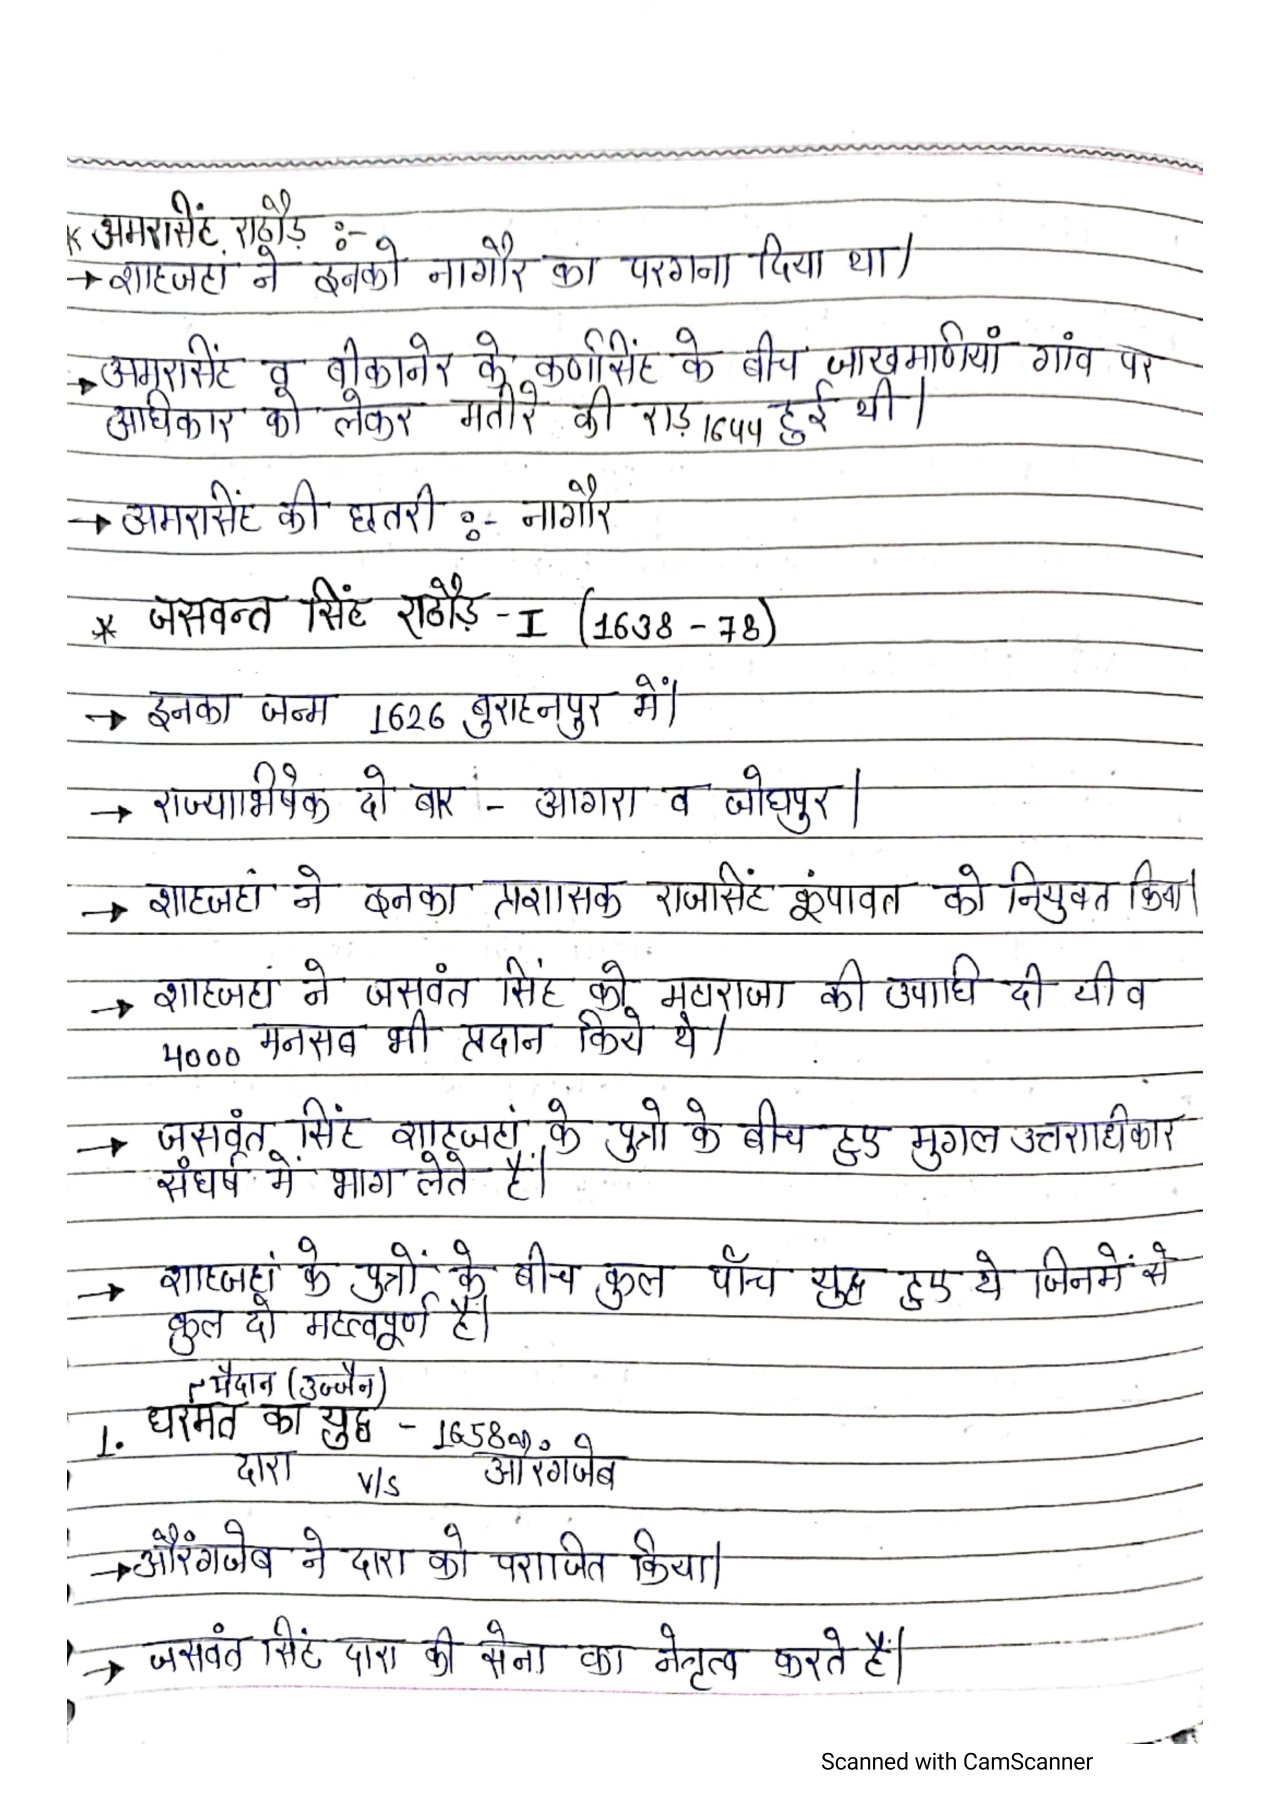 * अमरसिंह राठौड़ :-
→ शाहजहां ने इनको नागौर का परगना दिया था।
→ अमरसिंह व बीकानेर के कर्णसिंह के बीच जाखमणियां गांव पर
अधिकार को लेकर मतीरे की राड़ 1644 हुई थी।
→ अमरसिंह की छतरी :- नागौर
* जसवन्त सिंह राठौड़ - I (1638 - 78)
→ इनका जन्म 1626 बुराहनपुर में।
→ राज्याभिषेक दो बार - आगरा व जोधपुर।
→ शाहजहां ने इनका प्रशासक राजसिंह कूंपावत को नियुक्त किया।
→ शाहजहां ने जसवंत सिंह को महाराजा की उपाधि दी थी व
4000 मनसब भी प्रदान किये थे।
→ जसवंत सिंह शाहजहां के पुत्रो के बीच हुए मुगल उत्तराधिकार
संघर्ष में भाग लेते हैं।
→ शाहजहां के पुत्रों के बीच कुल पाँच युद्ध हुए थे जिनमें से
कुल दो महत्वपूर्ण हैं।
मैदान (उज्जैन)
1. धरमत का युद्ध - 1658 ई.
दारा v/s औरंगजेब
→ औरंगजेब ने दारा को पराजित किया।
→ जसवंत सिंह दारा की सेना का नेतृत्व करते हैं।
Scanned with CamScanner